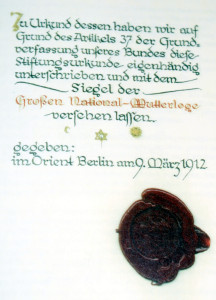 Zu Urkund dessen haben wir auf
Grund des Artikels 37 der Grund-
verfassung unseres Bundes diese
Stiftungsurkunde eigenhändig
unterschrieben und mit dem
Siegel der
Großen National-Mutterloge
versehen lassen.
gegeben:
im Orient Berlin am 9. März 1912